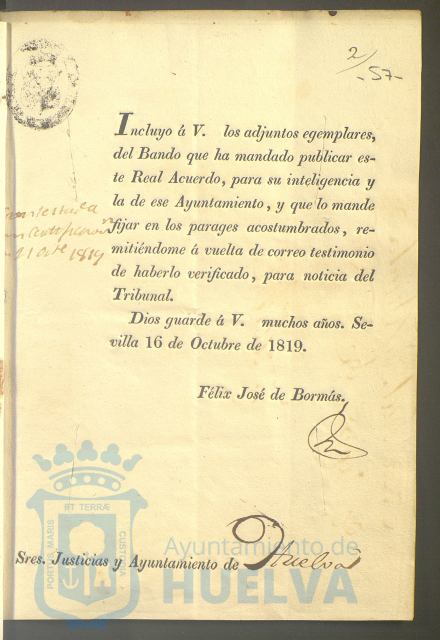 2
-57-
Incluyo á V. los adjuntos egemplares,
del Bando que ha mandado publicar es-
te Real Acuerdo, para su inteligencia y
la de ese Ayuntamiento, y que lo mande
fijar en los parages acostumbrados, re-
mitiéndome á vuelta de correo testimonio
de haberlo verificado, para noticia del
Tribunal.
Dios guarde á V. muchos años. Se-
villa 16 de Octubre de 1819.
1819
Félix José de Bormás.
Sres. Justicias y Ayuntamiento de Huelva
PORTUS MARIS
ET TERRÆ
CUSTODIA
Ayuntamiento de
HUELVA